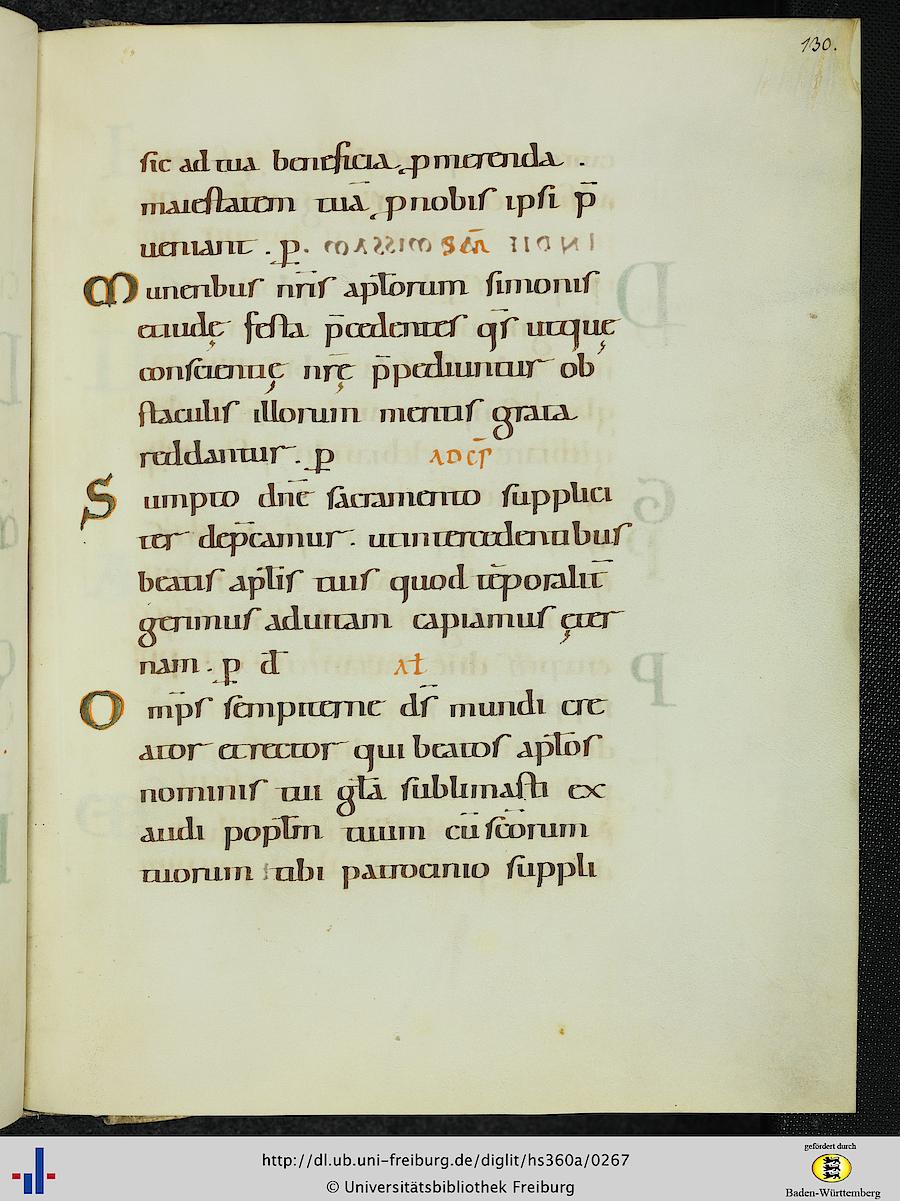 130.
sic ad tua beneficia ꝓmerenda .
maiestatem tuā ꝓ nobis ipsi p̄
ueniant . ꝑ. SCR̄A
Muneribus nr̄is apłorum simonis
et iudę festa p̄cedentes qs̄ ut quę
conscientię nr̄ę p̄pediuntur ob
staculis illorum meritis grata
reddantur . ꝑ AD CŌ
Sumpto dn̄e sacramento supplici
ter dep̄camur . ut intercedentibus
beatis apłis tuis quod tēporalit̄
gerimus ad uitam capiamus ęter
nam . ꝑ d̄ Ał
Om̄ps sempiterne ds̄ mundi cre
ator et rector qui beatos apłos
nominis tui głā sublimasti ex
audi poplm̄ tuum cū scōrum
tuorum tibi patrocinio suppli
http://dl.ub.uni-freiburg.de/diglit/hs360a/0267
© Universitätsbibliothek Freiburg
gefördert durch
Baden-Württemberg